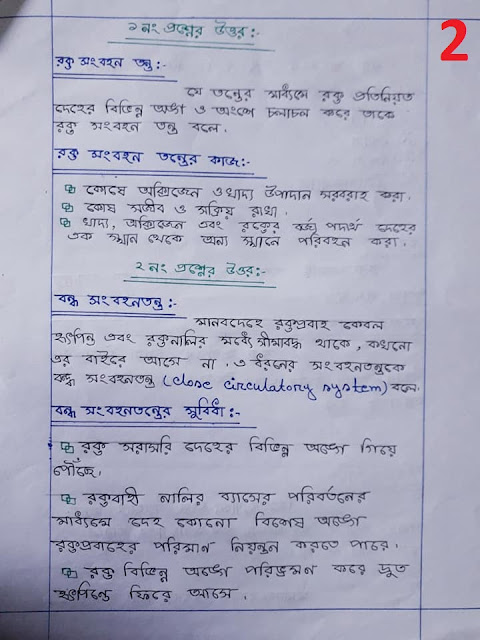 ১নং প্রশ্নের উত্তর:-
2
রক্ত সংবহন তন্ত্র:-
যে তন্ত্রের মাধ্যমে রক্ত প্রতিনিয়ত
দেহের বিভিন্ন অঙ্গ ও অংশে চলাচল করে তাকে
রক্ত সংবহন তন্ত্র বলে।
রক্ত সংবহন তন্ত্রের কাজ:-
কোষে অক্সিজেন ও খাদ্য উপাদান সরবরাহ করা।
কোষ সজীব ও সক্রিয় রাখা।
খাদ্য, অক্সিজেন এবং রক্তের বর্জ্য পদার্থ দেহের
এক স্থান থেকে অন্য স্থানে পরিবহন করা।
২নং প্রশ্নের উত্তর:-
বদ্ধ সংবহনতন্ত্র:-
মানবদেহে রক্তপ্রবাহ কেবল
হৃৎপিন্ড এবং রক্তনালির মধ্যে সীমাবদ্ধ থাকে, কখনো
এর বাইরে আসে না। এ ধরনের সংবহনতন্ত্রকে
বদ্ধ সংবহনতন্ত্র (close circulatory system) বলে।
বদ্ধ সংবহনতন্ত্রের সুবিধা:-
রক্ত সরাসরি দেহের বিভিন্ন অঙ্গে গিয়ে
পৌঁছে।
রক্তবাহী নালির ব্যাসের পরিবর্তনের
মাধ্যমে দেহ কোনো বিশেষ অঙ্গে
রক্তপ্রবাহের পরিমান নিয়ন্ত্রন করতে পারে।
রক্ত বিভিন্ন অঙ্গে পরিভ্রমন করে দ্রুত
হৃৎপিন্ডে ফিরে আসে।